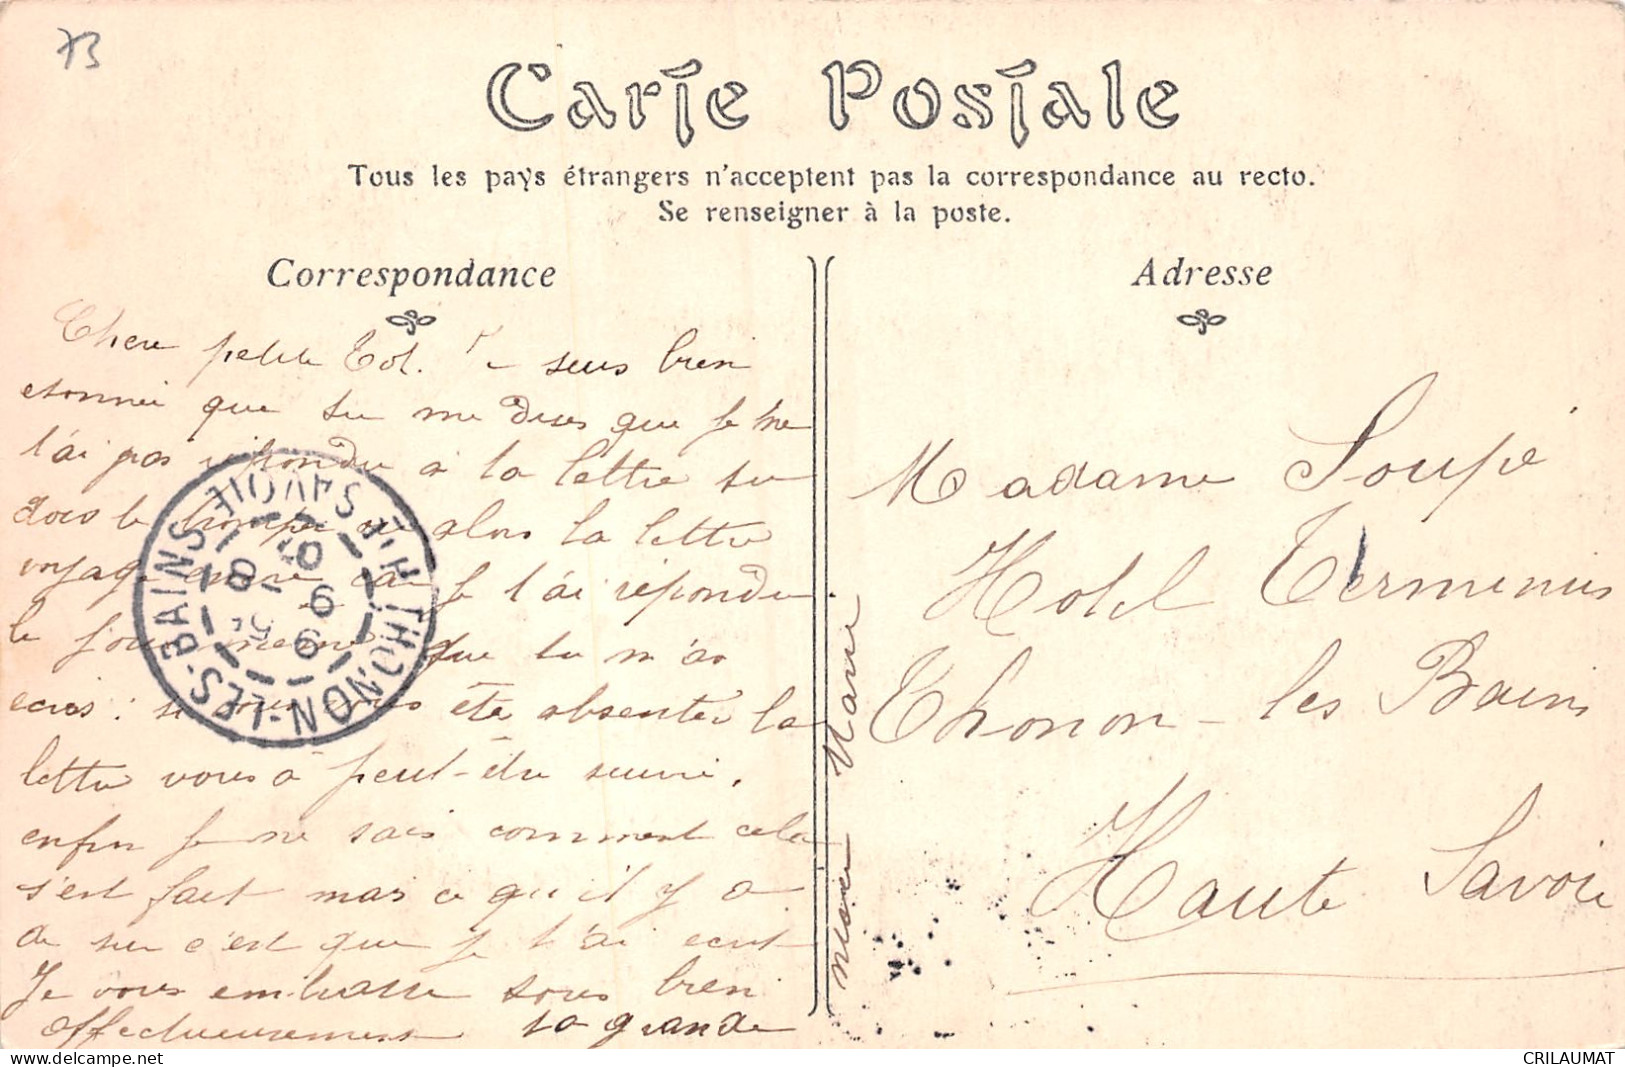 73
Carte Postale
Tous les pays étrangers n'acceptent pas la correspondance au recto.
Se renseigner à la poste.
Correspondance
Chere petite Tot. Je suis bien
etonnée que tu me dises que je ne
t'ai pas répondu a ta lettre tu
dois te tromper ou alors la lettre
voyage encore car je t'ai répondu
le jour meme que tu m'as
ecris: si vous vous ete absenter la
lettre vous a peut-être suivi.
enfin je ne sais comment cela
s'est fait mais ce qu'il y a
de sur c'est que je t'ai ecrit
Je vous embrasse tous bien
affectueusement ta grande
Marie
Adresse
Madame Soupé
Hotel Terminus
Thonon-les Bains
Haute Savoie
THONON-LES-BAINS
HTE SAVOIE
9 9
07
CRILAUMAT
www.delcampe.net